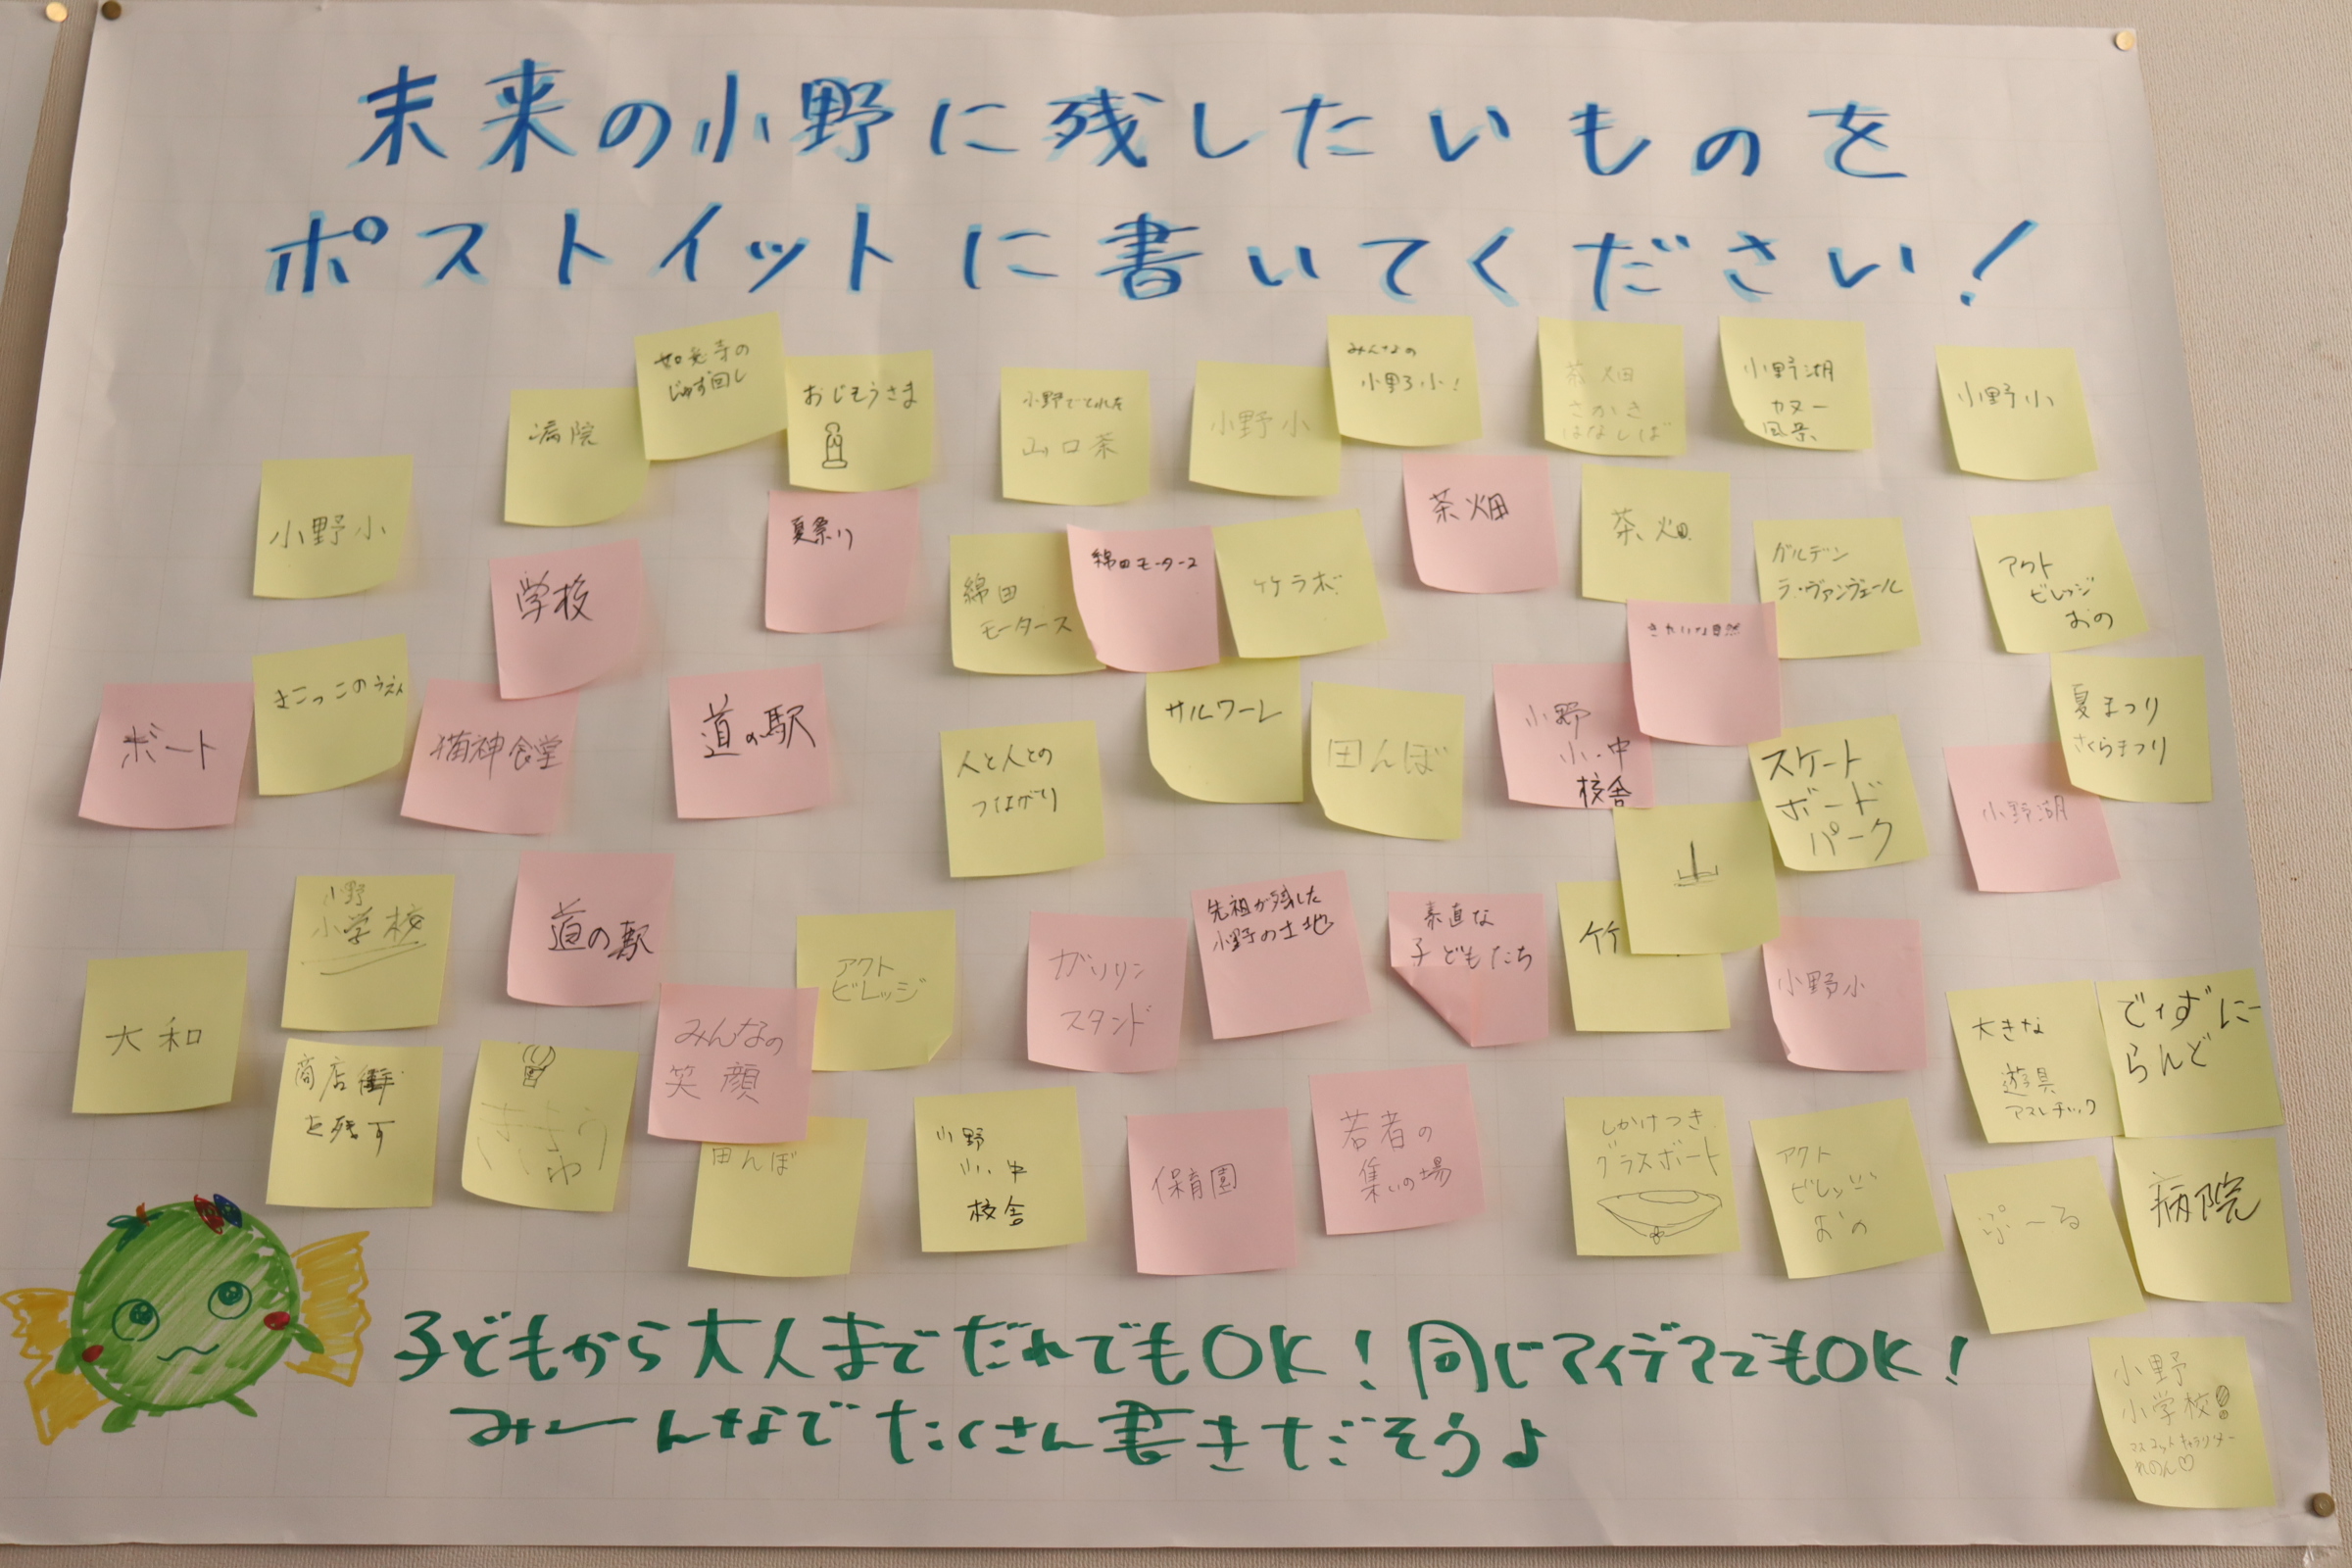 未来の小野に残したいものを
ポストイットに書いてください!
病院
じゅず回し
おじぞうさま
小野でとれた
山口茶
小野小
みんなの
小野小!
茶畑
さかき
はなしば
小野湖
カヌー
風景
小野小
小野小
学校
夏祭り
綿田
モータース
綿田モータース
竹ラボ
茶畑
茶畑
ガルデン
ラ・ヴァンヴェール
アクト
ビレッジ
おの
きれいな自然
ボート
猫神食堂
道の駅
人と人との
つながり
サルワーレ
田んぼ
小野
小・中
校舎
スケート
ボード
パーク
夏まつり
さくらまつり
小野湖
小野
小学校
道の駅
アクト
ビレッジ
ガソリン
スタンド
先祖が残した
小野の土地
素直な
子どもたち
竹
小野小
大和
商店街
を残す
みんなの
笑顔
田んぼ
小野
小・中
校舎
保育園
若者の
集いの場
しかけつき
グラスボート
アクト
ビレッジ
おの
大きな
遊具
アスレチック
でぃずにー
らんど
ぷーる
病院
小野
小学校!
マスコットキャラクター
子どもから大人までだれでもOK!同じアイデアでもOK!
み〜んなでたくさん書きだそうよ